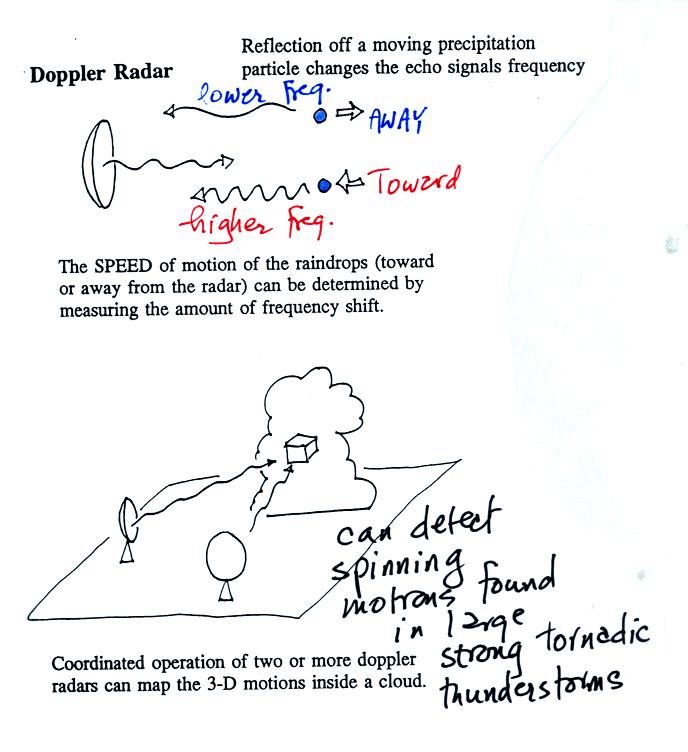 Doppler Radar
Reflection off a moving precipitation
particle changes the echo signals frequency
lower freq.
AWAY
Toward
higher freq.
The SPEED of motion of the raindrops (toward
or away from the radar) can be determined by
measuring the amount of frequency shift.
can detect
spinning
motions found
in large
strong tornadic
thunderstorms
Coordinated operation of two or more doppler
radars can map the 3-D motions inside a cloud.